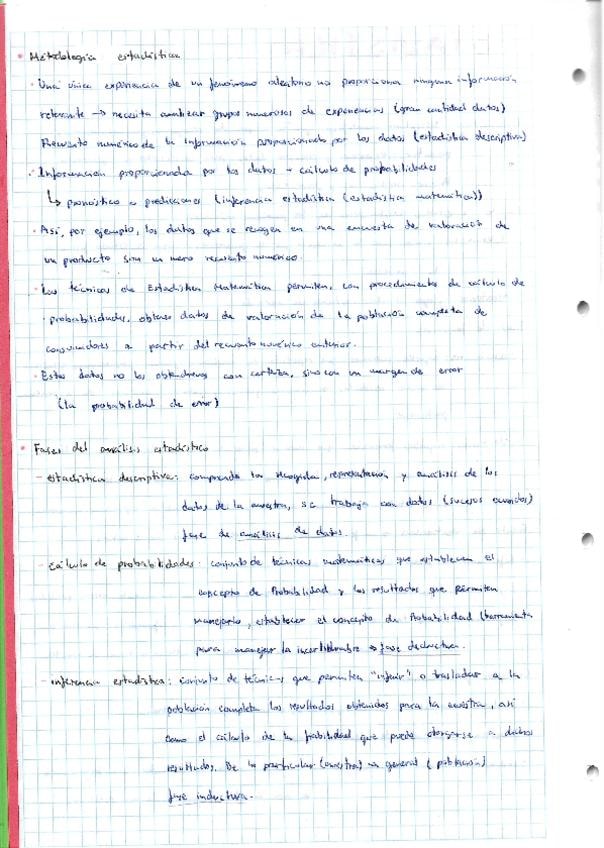 • Metodología estadística
· Una única experiencia de un fenómeno aleatorio no proporciona ninguna información
relevante → necesita analizar grupos numerosos de experiencias (gran cantidad datos)
Recuento numérico de la información proporcionada por los datos (estadística descriptiva)
· Información proporcionada por los datos + cálculo de probabilidades
↳ pronóstico o predicciones (inferencia estadística (estadística matemática))
· Así, por ejemplo, los datos que se recogen en una encuesta de valoración de
un producto son un mero recuento numérico
· Las técnicas de Estadística Matemática permiten, con procedimientos de cálculo de
probabilidades, obtener datos de valoración de la población completa de
consumidores a partir del recuento numérico anterior.
· Estos datos no los obtendremos con certeza, sino con un margen de error
(la probabilidad de error)
• Fases del análisis estadístico
- estadística descriptiva: comprende la recogida, representación y análisis de los
datos de la muestra, se trabaja con datos (sucesos ocurridos)
fase de análisis de datos.
- cálculo de probabilidades: conjunto de técnicas matemáticas que establecen el
concepto de Probabilidad y los resultados que permiten
manejarlo, establecer el concepto de Probabilidad (herramienta
para manejar la incertidumbre → fase deductiva.
- inferencia estadística: conjunto de técnicas que permiten "inferir" o trasladar a la
población completa los resultados obtenidos para la muestra, así
como el cálculo de la fiabilidad que puede otorgarse a dichos
resultados. De lo particular (muestra) a general (población)
fase inductiva.